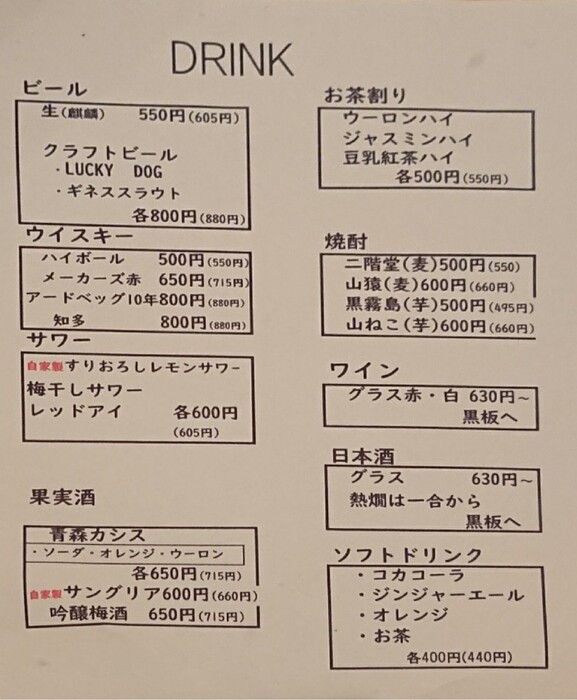 DRINK
ビール
生(麒麟) 550円(605円)
クラフトビール
・LUCKY DOG
・ギネススラウト
各800円(880円)
ウイスキー
ハイボール 500円(550円)
メーカーズ赤 650円(715円)
アードベッグ10年800円(880円)
知多 800円(880円)
サワー
自家製すりおろしレモンサワー
梅干しサワー
レッドアイ 各600円
(605円)
果実酒
青森カシス
・ソーダ・オレンジ・ウーロン
各650円(715円)
自家製サングリア600円(660円)
吟醸梅酒 650円(715円)
お茶割り
ウーロンハイ
ジャスミンハイ
豆乳紅茶ハイ
各500円(550円)
焼酎
二階堂(麦)500円(550)
山猿(麦)600円(660円)
黒霧島(芋)500円(495円)
山ねこ(芋)600円(660円)
ワイン
グラス赤・白 630円~
黒板へ
日本酒
グラス 630円~
熱燗は一合から
黒板へ
ソフトドリンク
・コカコーラ
・ジンジャーエール
・オレンジ
・お茶
各400円(440円)